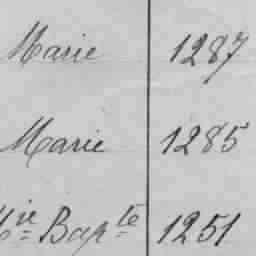 Marie 1287
Marie 1285
Mie Bapte 1251